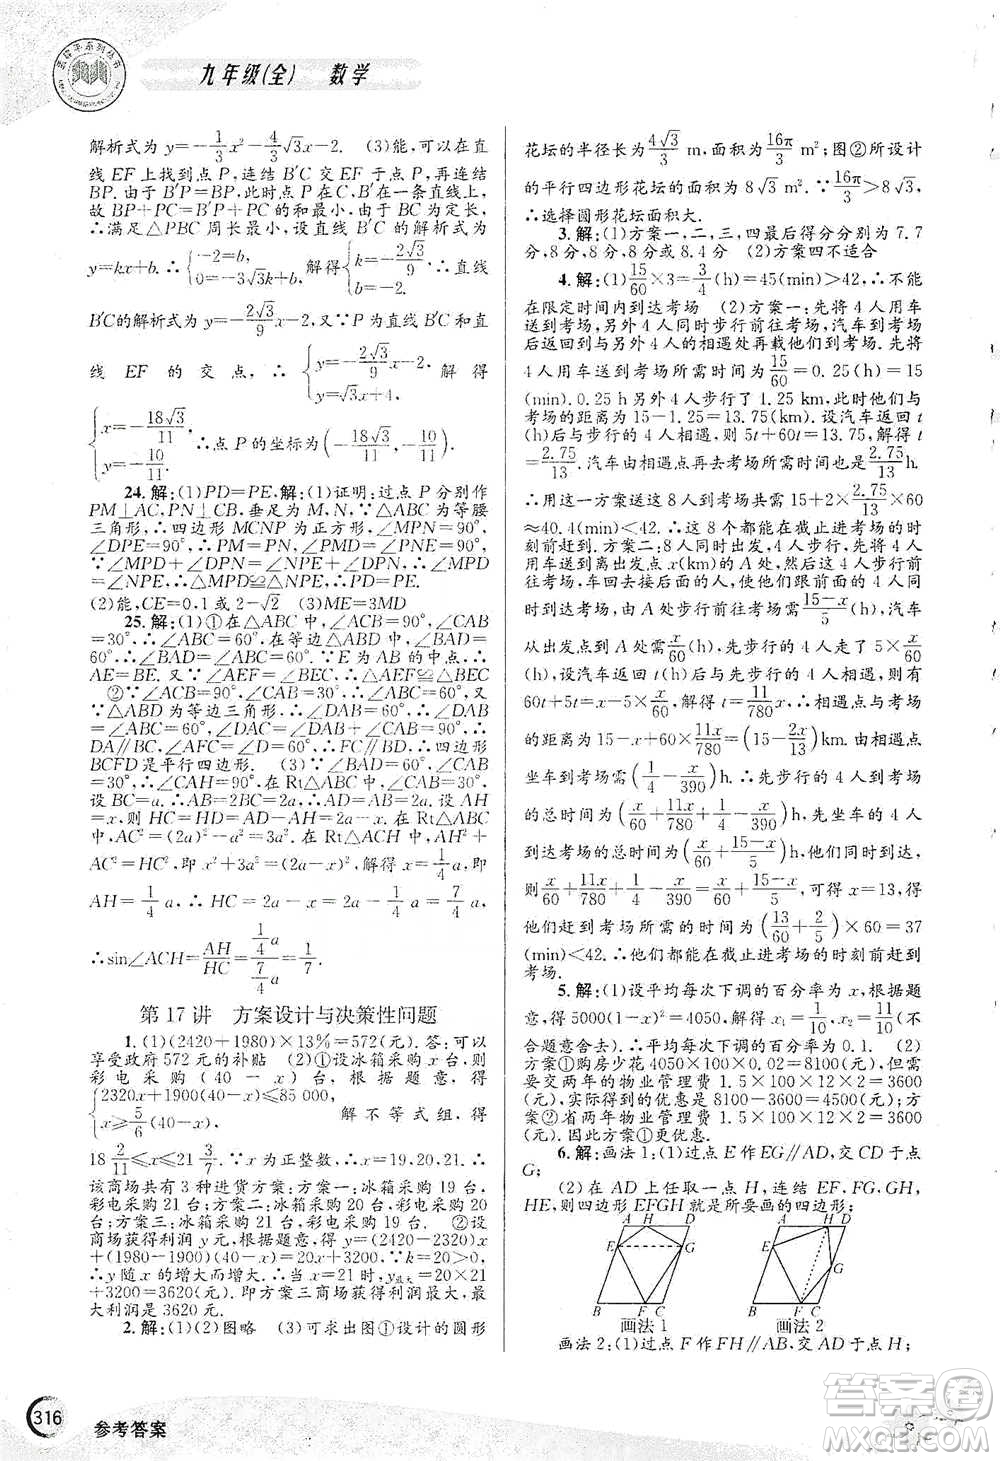 九年级(全) 数学
解析式为 y=-1/3x²-4/3√3x-2. (3)能,可以在直
线 EF 上找到点 P,连结 B′C 交 EF 于点 P,再连结
BP. 由于 B′P=BP,此时点 P 在 C、B′在一条直线上,
故 BP+PC=B′P+PC 的和最小. 由于 BC 为定长,
∴满足△PBC 周长最小. 设直线 B′C 的解析式为
y=kx+b. ∴{-2=b, 0=-3√3k+b. 解得{k=-2√3/9, b=-2. ∴直线
B′C的解析式为 y=-2√3/9x-2,又∵P 为直线B′C和直
线 EF 的交点, ∴{y=-2√3/9x-2, 解得
{x=-18√3/11, y=-10/11. ∴点 P 的坐标为(-18√3/11, -10/11).
24. 解:(1)PD=PE,解:(1)证明:过点 P 分别作
PM⊥AC,PN⊥CB,垂足为 M,N,∵△ABC 为等腰
三角形,∴四边形 MCNP 为正方形,∠MPN=90°,
∠DPE=90°,∴PM=PN,∠PMD=∠PNE=90°,
∵∠MPD+∠DPN=90°,∠DPN+∠NPE=90°,
∴∠NPE,∴△MPD≌△NPE,∴PD=PE.
(2)能,CE=0,1或 2-√2 (3)ME=3MD
25. 解:(1)①在△ABC 中,∠BCA=90°,∠CAB
=30°,∴∠ABC=60°,在等边△ABD 中,∠BAD=
60°,∴∠BAD=∠ABC=60°. ∵E 为 AB 的中点,∴
AE=BE. 又∵∠AEF=∠BEC,∴△AEF≌△BEC
②∵∠BCA=90°,∠CAB=30°,∴∠ABC=60°,又∵
△ABD 为等边三角形,∴∠DAB=60°,∵∠DAB
+∠CAB=90°,∴∠DAC+∠ACB=180°,∴
DA∥BC,∵∠AFC=90°,∴FC∥BD,∴四边形
BCFD是平行四边形. (3)∵∠BAD=60°,∠CAB
=30°,∴∠CAH=90°,在 Rt△ABC 中,∠CAB=30°,
设 BC=a,∴AB=2BC=2a,∴AD=AB=2a. 设 AH=
x,则 HC=HD=AD-AH=2a-x. 在 Rt△ABC
中,AC²=(2a)²-a²=3a². 在 Rt△ACH 中,AH²+
AC²=HC²,即 x²+3a²=(2a-x)²,解得 x=1/4a,即
AH=1/4a,∴HC=2a-x=2a-1/4a=7/4a.
∴sin∠ACH=AH/HC=(1/4a)/(7/4a)=1/7.
第 17 讲 方案设计与决策性问题
1. (1)(2420+1980)×13%=572(元). 答:可以
享受政府 572 元的补贴 (2)①设冰箱采购 x 台,则
彩电采购 (40-x) 台,根据题意,得
{2320x+1900(40-x)≤85 000, x≥5/6(40-x). 解不等式组,得
18 2/11≤x≤21 3/7. ∵x 为正整数,∴x=19,20,21. ∴
该商场共有 3 种进货方案:方案一:冰箱采购 19 台,
彩电采购 21 台;方案二:冰箱采购 20 台,彩电采购
20 台;方案三:冰箱采购 21 台,彩电采购 19 台. ②设
商场获得利润 y 元,根据题意,得 y=(2420-2320)x
+(1980-1900)(40-x)=20x+3200. ∵20>0,
∴y 随 x 增大而增大,∴当 x=21 时,y最大=20×21
+3200=3620(元). 即方案三商场获得利润最大,最
大利润是 3620 元.
2. 解:(1)(2)图略 (3)可求出图①设计的圆形
花坛的半径长为4√3/3 m,面积为16π/3 m²;图②所设计
的平行四边形花坛的面积为 8√3 m². ∵16π/3>8√3,
∴选择圆形花坛面积大.
3. 解:(1)方案一、二、三、四最后得分分别为 7.7
分,8分,8分,8分或 8.4 分 (2)方案四不适合
4. 解:(1)15/60×3=3/4(h)=45(min)>42,∴不能
在限定时间内到达考场 (2)方案一:先将 4 人用车
送到考场,另外 4 人同时步行前往考场,汽车到考场
后返回到与另外 4 人的相遇处再载他们到考场. 先将
4 人用车送到考场所需时间为15/60=0.25(h)=15
(min). 0.25 h 另外 4 人步行了 1.25 km,此时他们与
考场的距离为 15-1.25=13.75(km). 设汽车返回 t
(h)后与步行的 4 人相遇,则 5t+60t=13.75,解得 t
=2.75/13. 汽车由相遇点再去考场所需时间也是2.75/13h.
∴用这一方案送这 8 人到考场共需 15+2×2.75/13×60
≈40.4(min)<42. ∴这 8 个都能在截止进考场的时
刻前赶到. 方案二:8人同时出发,4人步行,先将 4 人
用车送到离出发点 x(km)的 A 处,然后这 4 人步行前
往考场,车回去接后面的人,使他们跟前面的 4 人同
时到达考场. 由 A 处步行前往考场需(15-x)/5(h),汽车
从出发点到 A 处需x/60(h),先步行的 4 人走了 5×x/60
(km). 设汽车返回 t(h)后与先步行的 4 人相遇,则有
60t+5t=x-5×x/60,解得 t=11/780x,∴相遇点与考场
的距离为 15-x+60×11x/780=(15-2x/13)(km). ∴他们
坐车到考场需(1/4-x/390)h. ∴先步行的 4 人到考场
的总时间为(x/60+11x/780+1/4-x/390)h,先坐车的 4 人
到达考场的总时间为(x/60+(15-x)/5)h,他们同时到达,
则有x/60+11x/780+1/4-x/390=x/60+(15-x)/5,可得 x=13,
他们赶到考场所需的时间为(13/60+2/5)×60=37
(min)<42. ∴他们都能在截止进考场的时刻前赶到
考场.
5. 解:(1)设平均每次下调的百分率为 x,根据题
意,得 5000(1-x)²=4050,解得 x₁=1/10,x₂=19/10(不
合题意舍去). ∴平均每次下调的百分率为 0.1. (2)
方案①购房少花 4050×100×0.02=8100(元),但需
要交两年的物业管理费 1.5×100×12×2=3600
(元),实际得到的优惠是 8100-3600=4500(元);方
案②省两年物业管理费 1.5×100×12×2=3600
(元). 因此方案①更优惠.
6. 解:画法 1:(1)过点 E 作EG∥AD,交 CD 于点
G;
(2)在 AD 上任取一点 H,连结 EF,FG,GH,
HE,则四边形 EFGH 就是所要画的四边形;
A H D
E G
B F C
画法 1
A H D
E
G
B F C
画法 2
画法 2:(1)过点 F 作 FH∥AB,交 AD 于点 H;
316
参考答案
答案圈
MXQE.COM